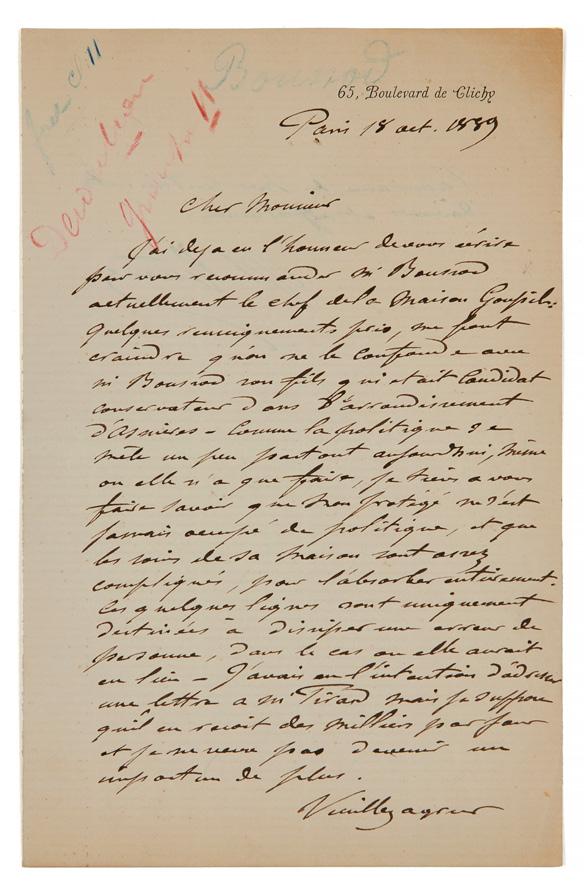 Boussod
65, Boulevard de Clichy
Paris 18 oct. 1889
Cher Monsieur
J'ai deja eu l'honneur de vous écrire
pour vous recommander Mr Boussod
actuellement le chef de la Maison Goupil.
Quelques renseignements pris, me font
craindre qu'on ne le confonde avec
Mr Boussod son fils qui etait Candidat
conservateur dans l'arrondissement
d'Asnières - Comme la politique se
mêle un peu partout aujourd'hui, même
ou elle n'a que faire, je tiens a vous
faire savoir que mon protégé ne s'est
jamais occupé de politique, et que
les soins de sa maison sont assez
compliqués, pour l'absorber entièrement.
Ces quelques lignes sont uniquement
destinées à dissiper une erreur de
personne, dans le cas ou elle aurait
eu lieu - J'avais eu l'intention d'adresser
une lettre a Mr Tirard mais je suppose
qu'il en recoit des milliers par jour
et je ne veux pas devenir un
importun de plus.
Veuillez agréer